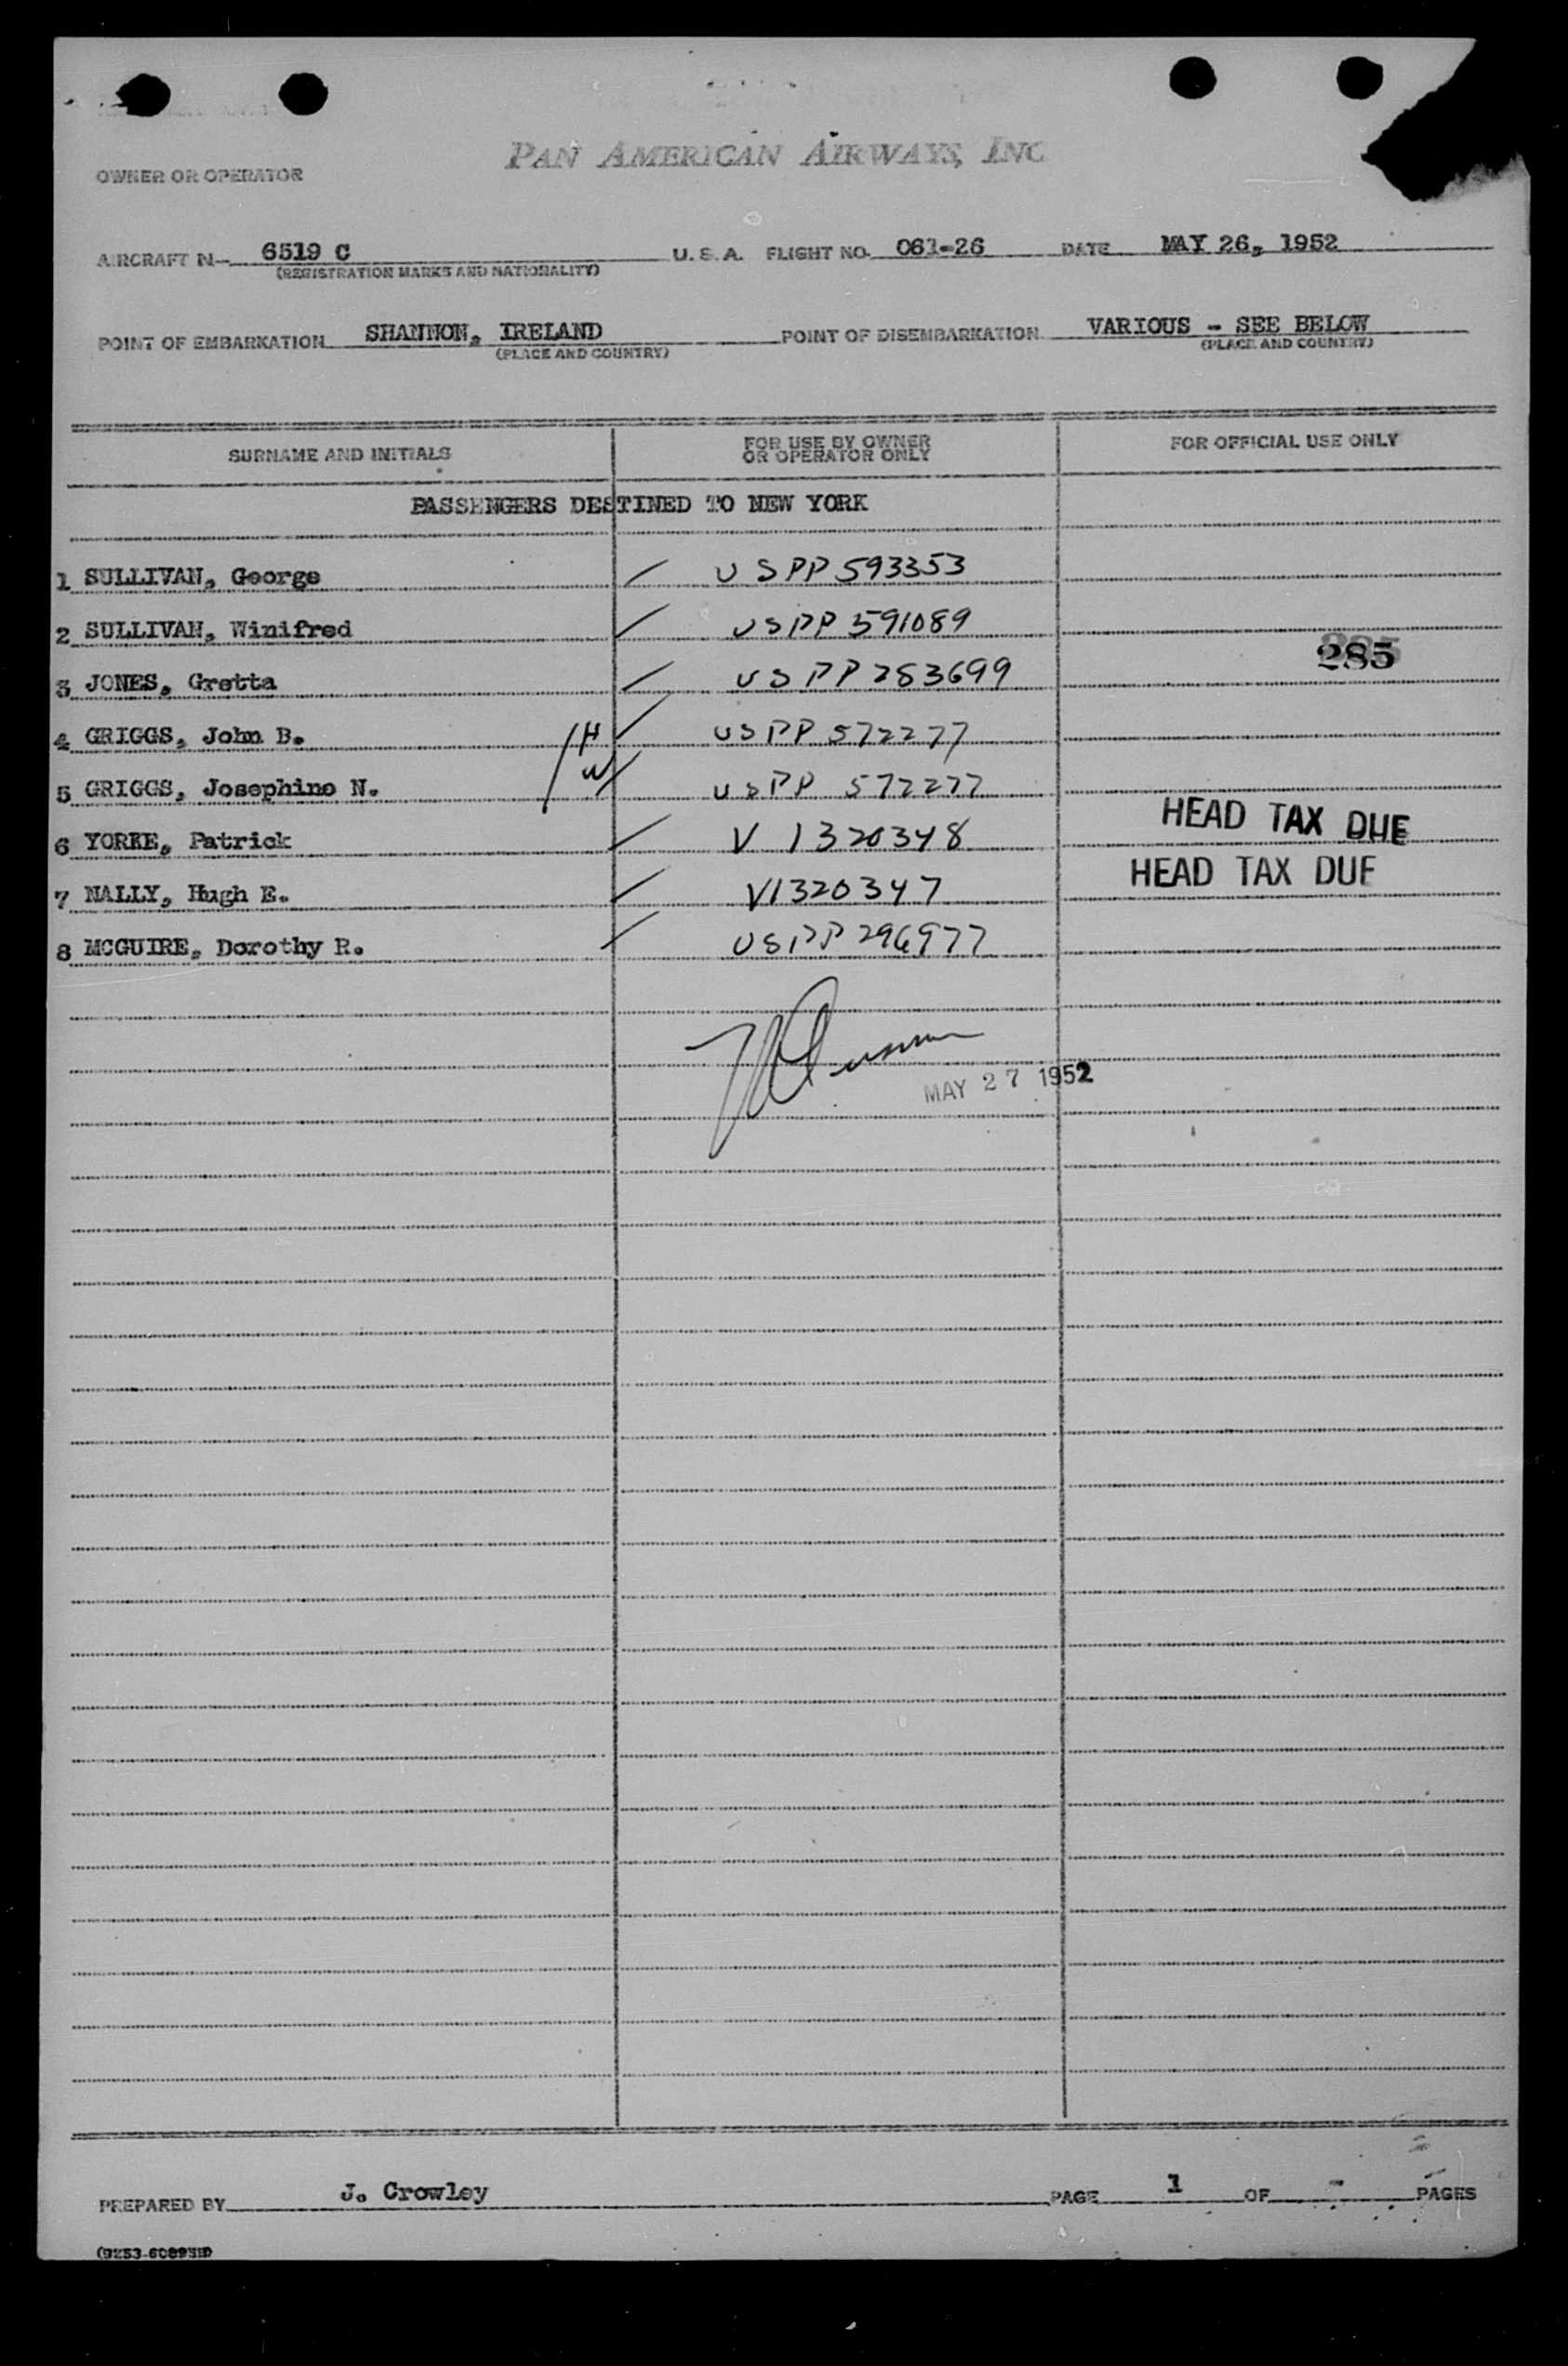 PAN AMERICAN AIRWAYS, INC
OWNER OR OPERATOR
AIRCRAFT N- 6519 C U. S. A. FLIGHT NO. 061-26 DATE MAY 26, 1952
(REGISTRATION MARKS AND NATIONALITY)
POINT OF EMBARKATION SHANNON, IRELAND POINT OF DISEMBARKATION VARIOUS - SEE BELOW
(PLACE AND COUNTRY) (PLACE AND COUNTRY)
SURNAME AND INITIALS FOR USE BY OWNER OR OPERATOR ONLY FOR OFFICIAL USE ONLY
PASSENGERS DESTINED TO NEW YORK
1 SULLIVAN, George USPP 593353
2 SULLIVAN, Winifred USPP 591089
285
3 JONES, Gretta USPP 283699
4 GRIGGS, John B. H USPP 572277
5 GRIGGS, Josephine N. W USPP 572277
HEAD TAX DUE
6 YORKE, Patrick V 1320348
HEAD TAX DUE
7 NALLY, Hugh E. V1320347
8 MCGUIRE, Dorothy R. USPP 296977
MAY 27 1952
PREPARED BY J. Crowley PAGE 1 OF - PAGES